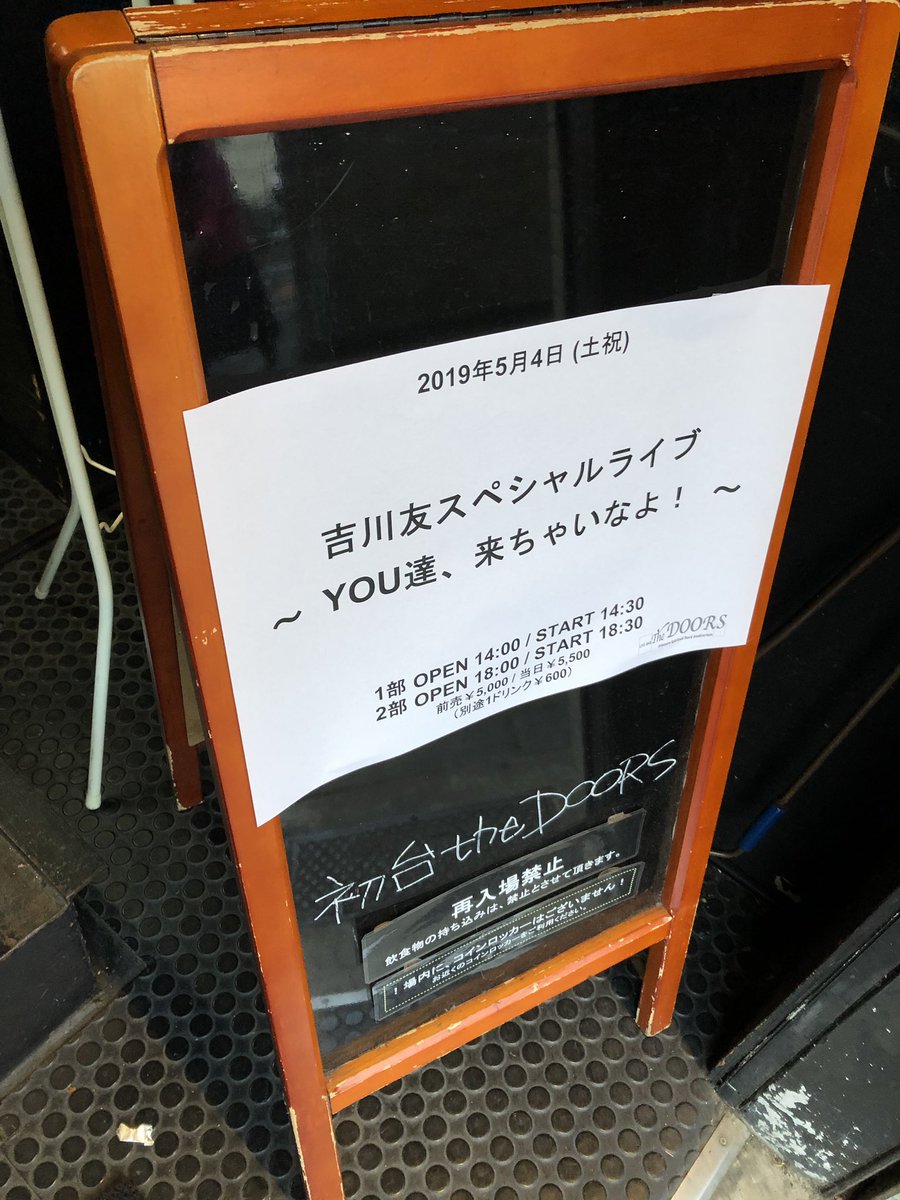 2019年5月4日 (土祝)
吉川友スペシャルライブ
～ YOU達、来ちゃいなよ！ ～
1部 OPEN 14:00 / START 14:30
2部 OPEN 18:00 / START 18:30
前売￥5,000 / 当日￥5,500
（別途1ドリンク￥600）
The DOORS
初台 the DOORS
再入場禁止
飲食物の持ち込みは、禁止とさせて頂きます。
！場内に、コインロッカーはございません！
お近くのコインロッカーをご利用ください。